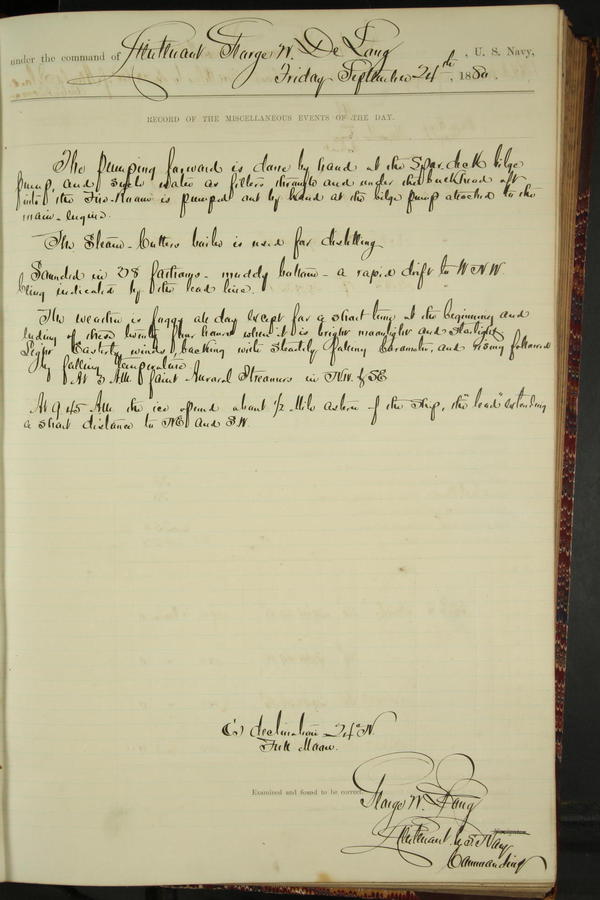 under the command of Lieutenant George W. De Long, U. S. Navy,
Friday September 24th, 1880.
RECORD OF THE MISCELLANEOUS EVENTS OF THE DAY.
The pumping forward is done by hand at the Spar deck bilge
pump, and such water as filters through and under the bulkhead aft
into the Fire-Room is pumped out by hand at the bilge pump attached to the
main-engine.
The Steam-Cutters boiler is used for distilling
Sounded in 38 fathoms - muddy bottom - a rapid drift to WNW
being indicated by the lead line.
The weather is foggy all day except for a short time at the beginning and
ending of these twenty four hours when it is bright moonlight and starlight
Light Easterly winds, backing with steadily falling barometer, and rising followed
by falling temperature
At 3 AM. faint Auroral Streamers in NW. & SE
At 9.45 AM. the ice opened about ½ Mile astern of the Ship, the "lead" extending
a short distance to NE and SW.
declination 24° N
Full Moon.
Examined and found to be correct.
George W. De Long
Lieutenant U.S. Navy
Commanding